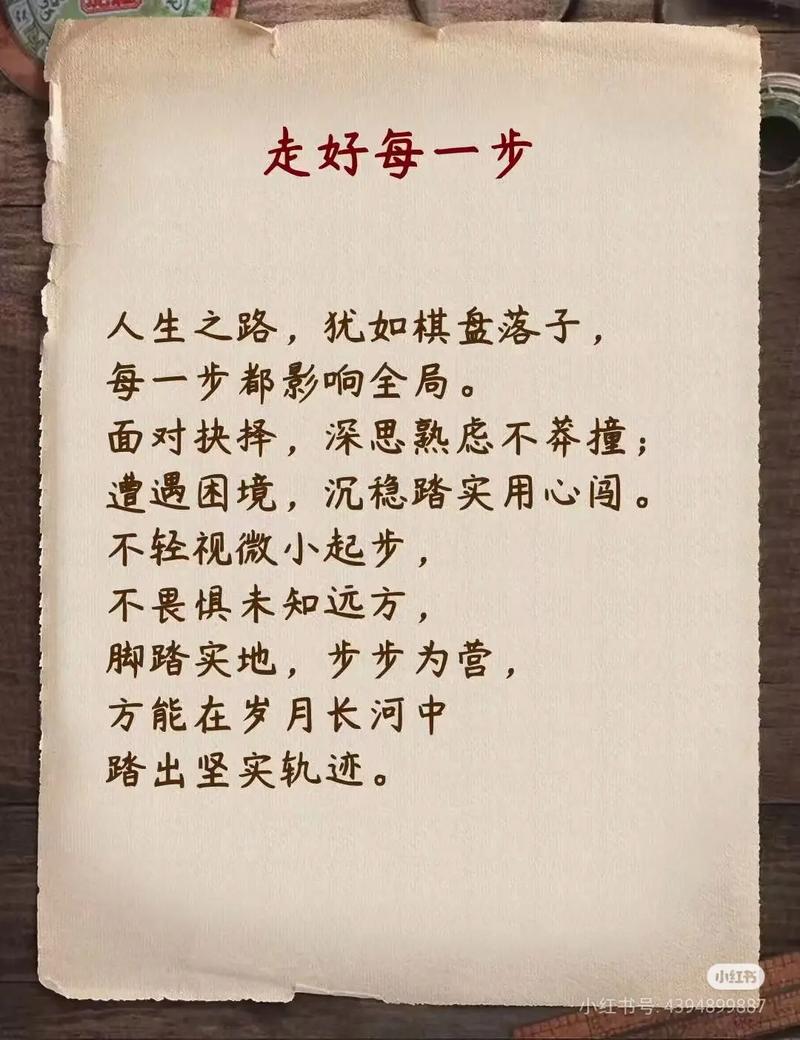 走好每一步
人生之路，犹如棋盘落子，
每一步都影响全局。
面对抉择，深思熟虑不莽撞；
遭遇困境，沉稳踏实用心闯。
不轻视微小起步，
不畏惧未知远方，
脚踏实地，步步为营，
方能在岁月长河中
踏出坚实轨迹。
小红书
小红书号: 4394899887